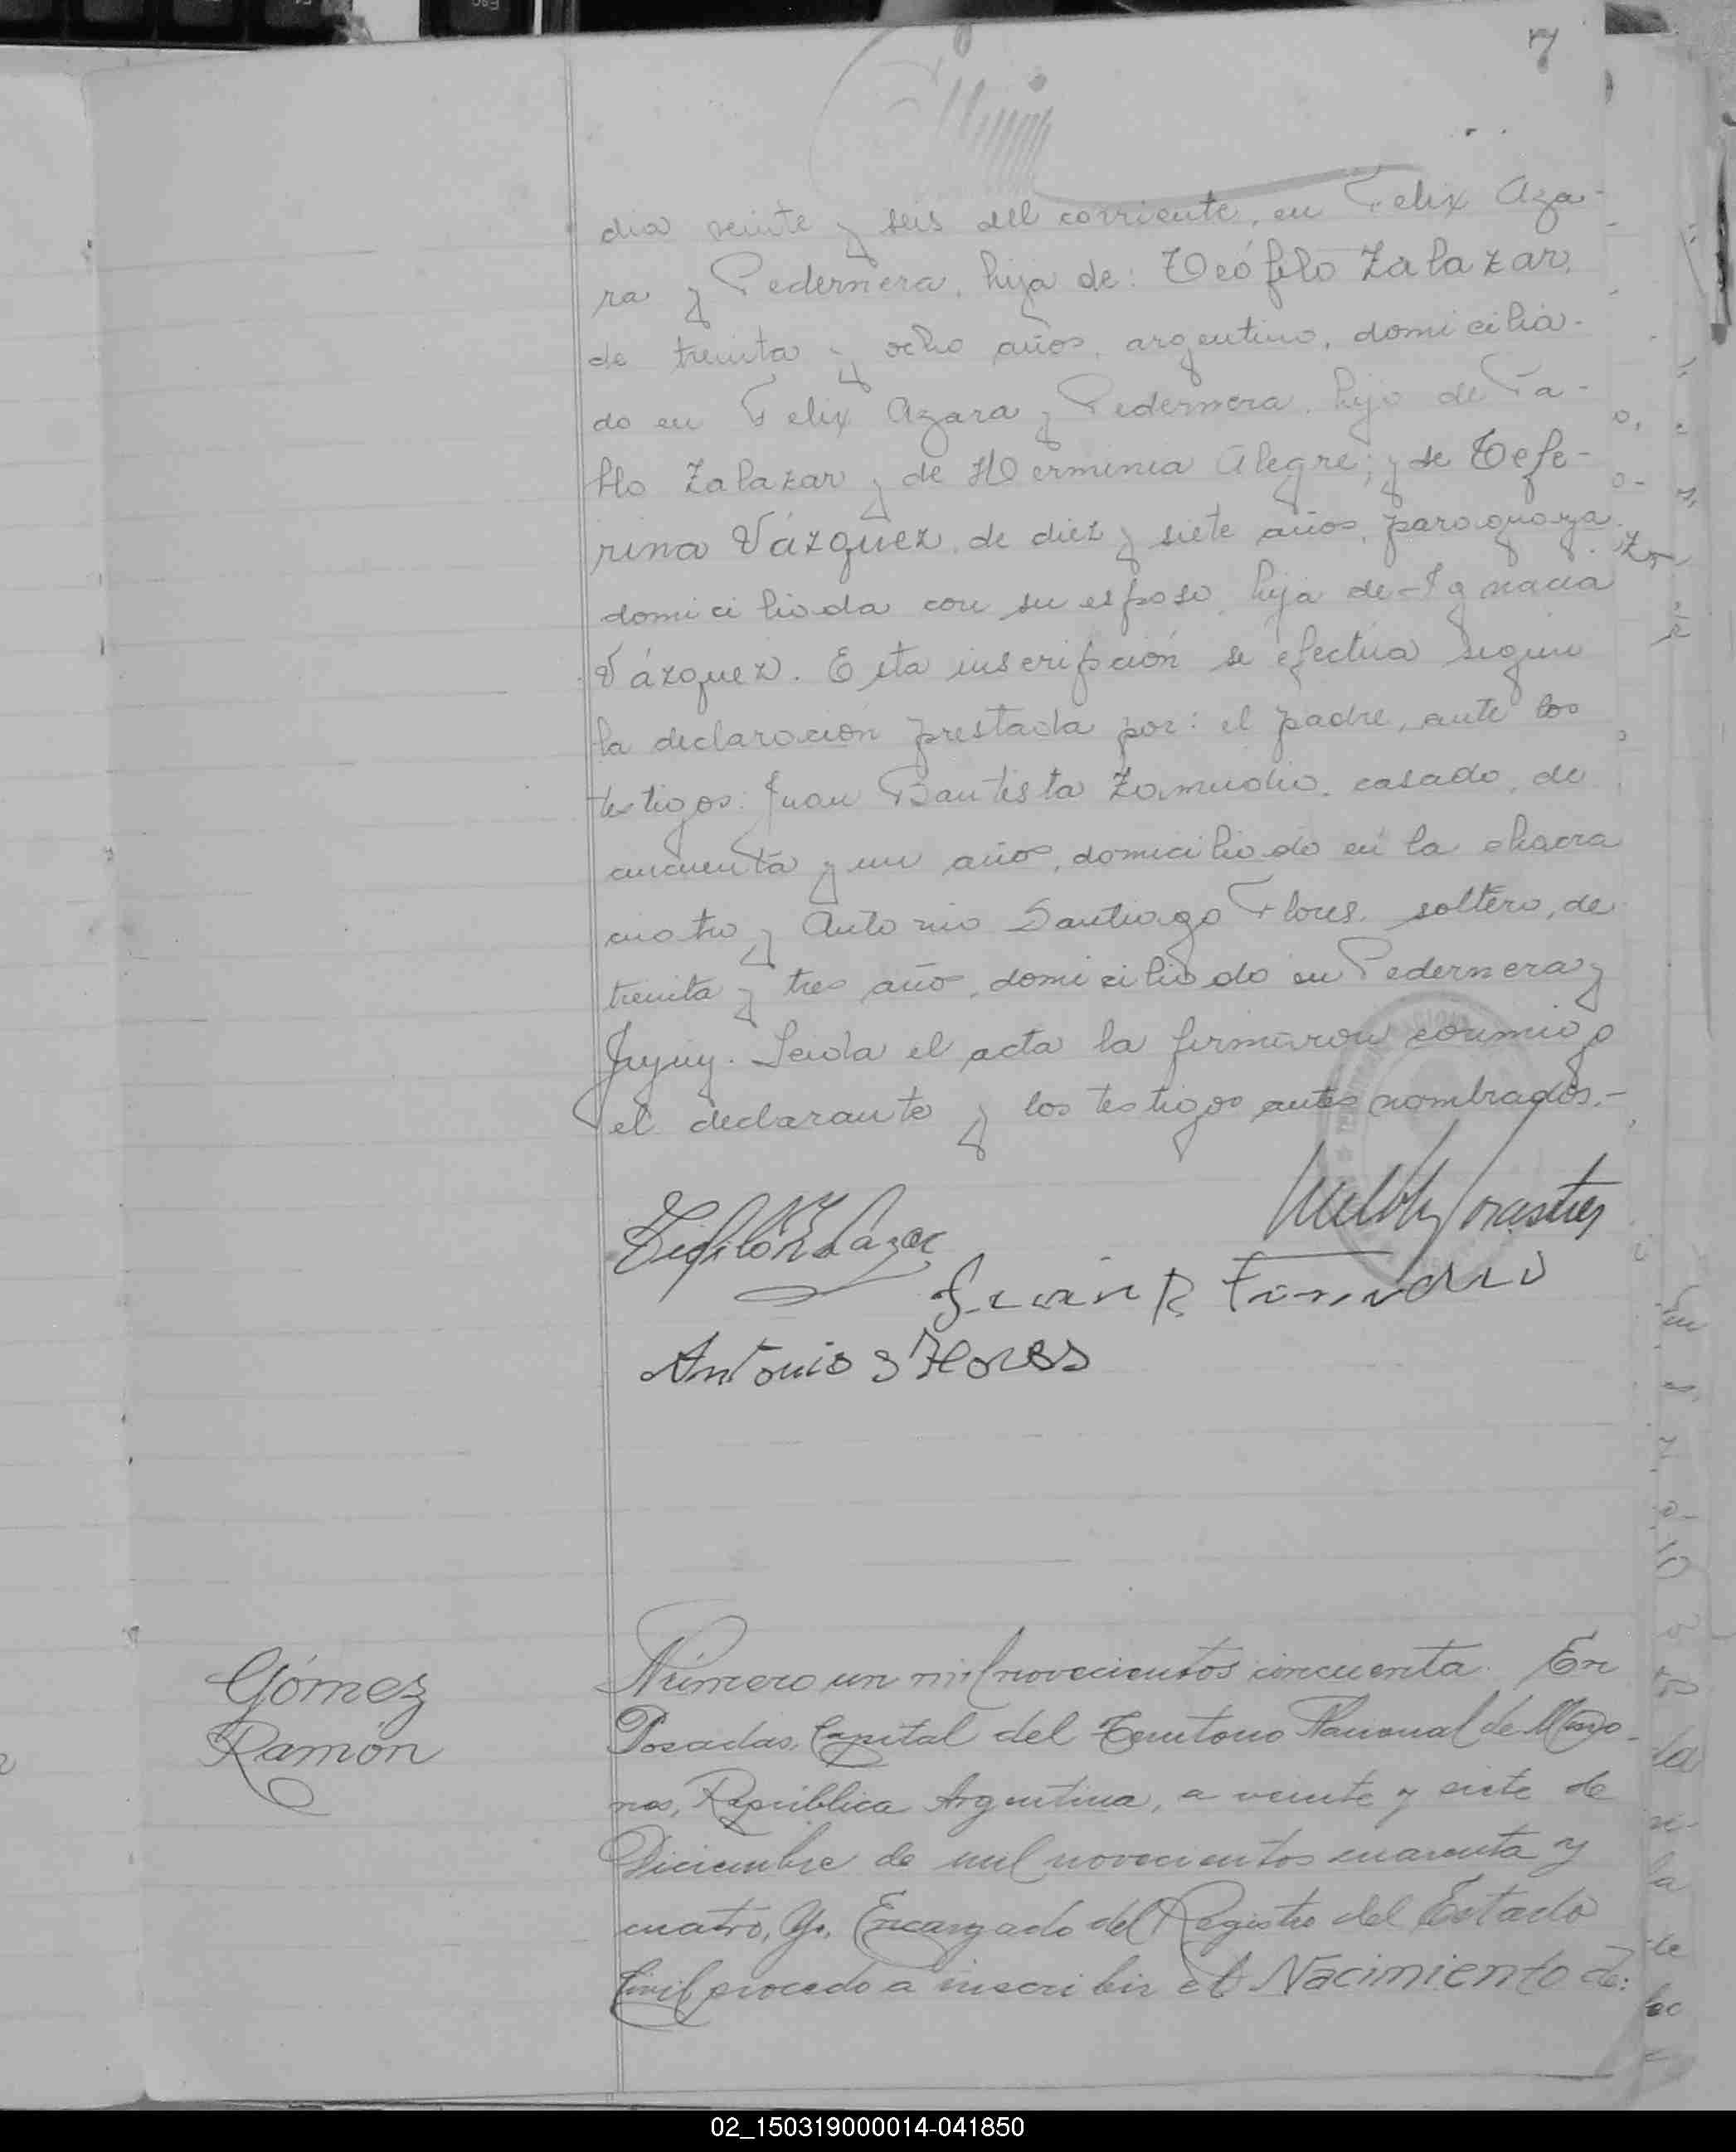 7
dia veinte y seis del corriente, en Felix Aza-
ra y Pedernera, hija de: Teófilo Zalazar,
de treinta y ocho años, argentino, domicilia-
do en Felix Azara y Pedernera, hijo de Pa-
blo Zalazar y de Herminia Alegre; y de Cefe-
rina Vázquez, de diez y siete años, paraguaya,
domiciliada con su esposo, hija de Ignacia
Vázquez. Esta inscripción se efectúa según
la declaración prestada por: el padre, ante los
testigos: Juan Bautista Zamudio, casado, de
cincuenta y un años, domiciliado en la chacra
cuatro y Antonio Santiago Flores, soltero, de
treinta y tres año, domiciliado en Pedernera y
Jujuy. Leida el acta la firmaron conmigo
el declarante y los testigos antes nombrados.-
Antonio S Flores
Gómez
Ramón
Número un mil novecientos cincuenta. En
Posadas, Capital del Territorio Nacional de Misio-
nes, República Argentina, a veinte y siete de
Diciembre de mil novecientos cuarenta y
cuatro, Yo, Encargado del Registro del Estado
Civil procedo a inscribir el Nacimiento de:
02_150319000014-041850